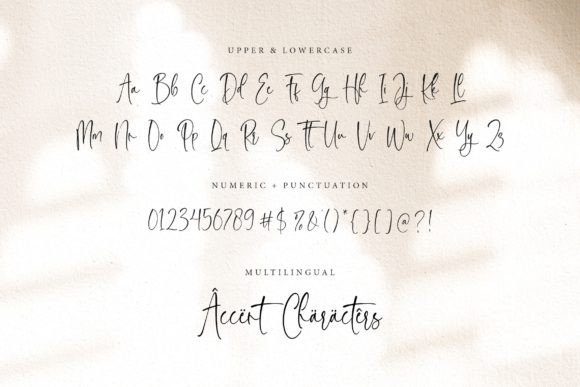 UPPER & LOWERCASE
Aa Bb Cc Dd Ee Ff Gg Hh Ii Jj Kk Ll
Mm Nn Oo Pp Qq Rr Ss Tt Uu Vv Ww Xx Yy Zz
NUMERIC + PUNCTUATION
0123456789#$%&()*{}[]@?!
MULTILINGUAL
Âccënt Chäräctêrs